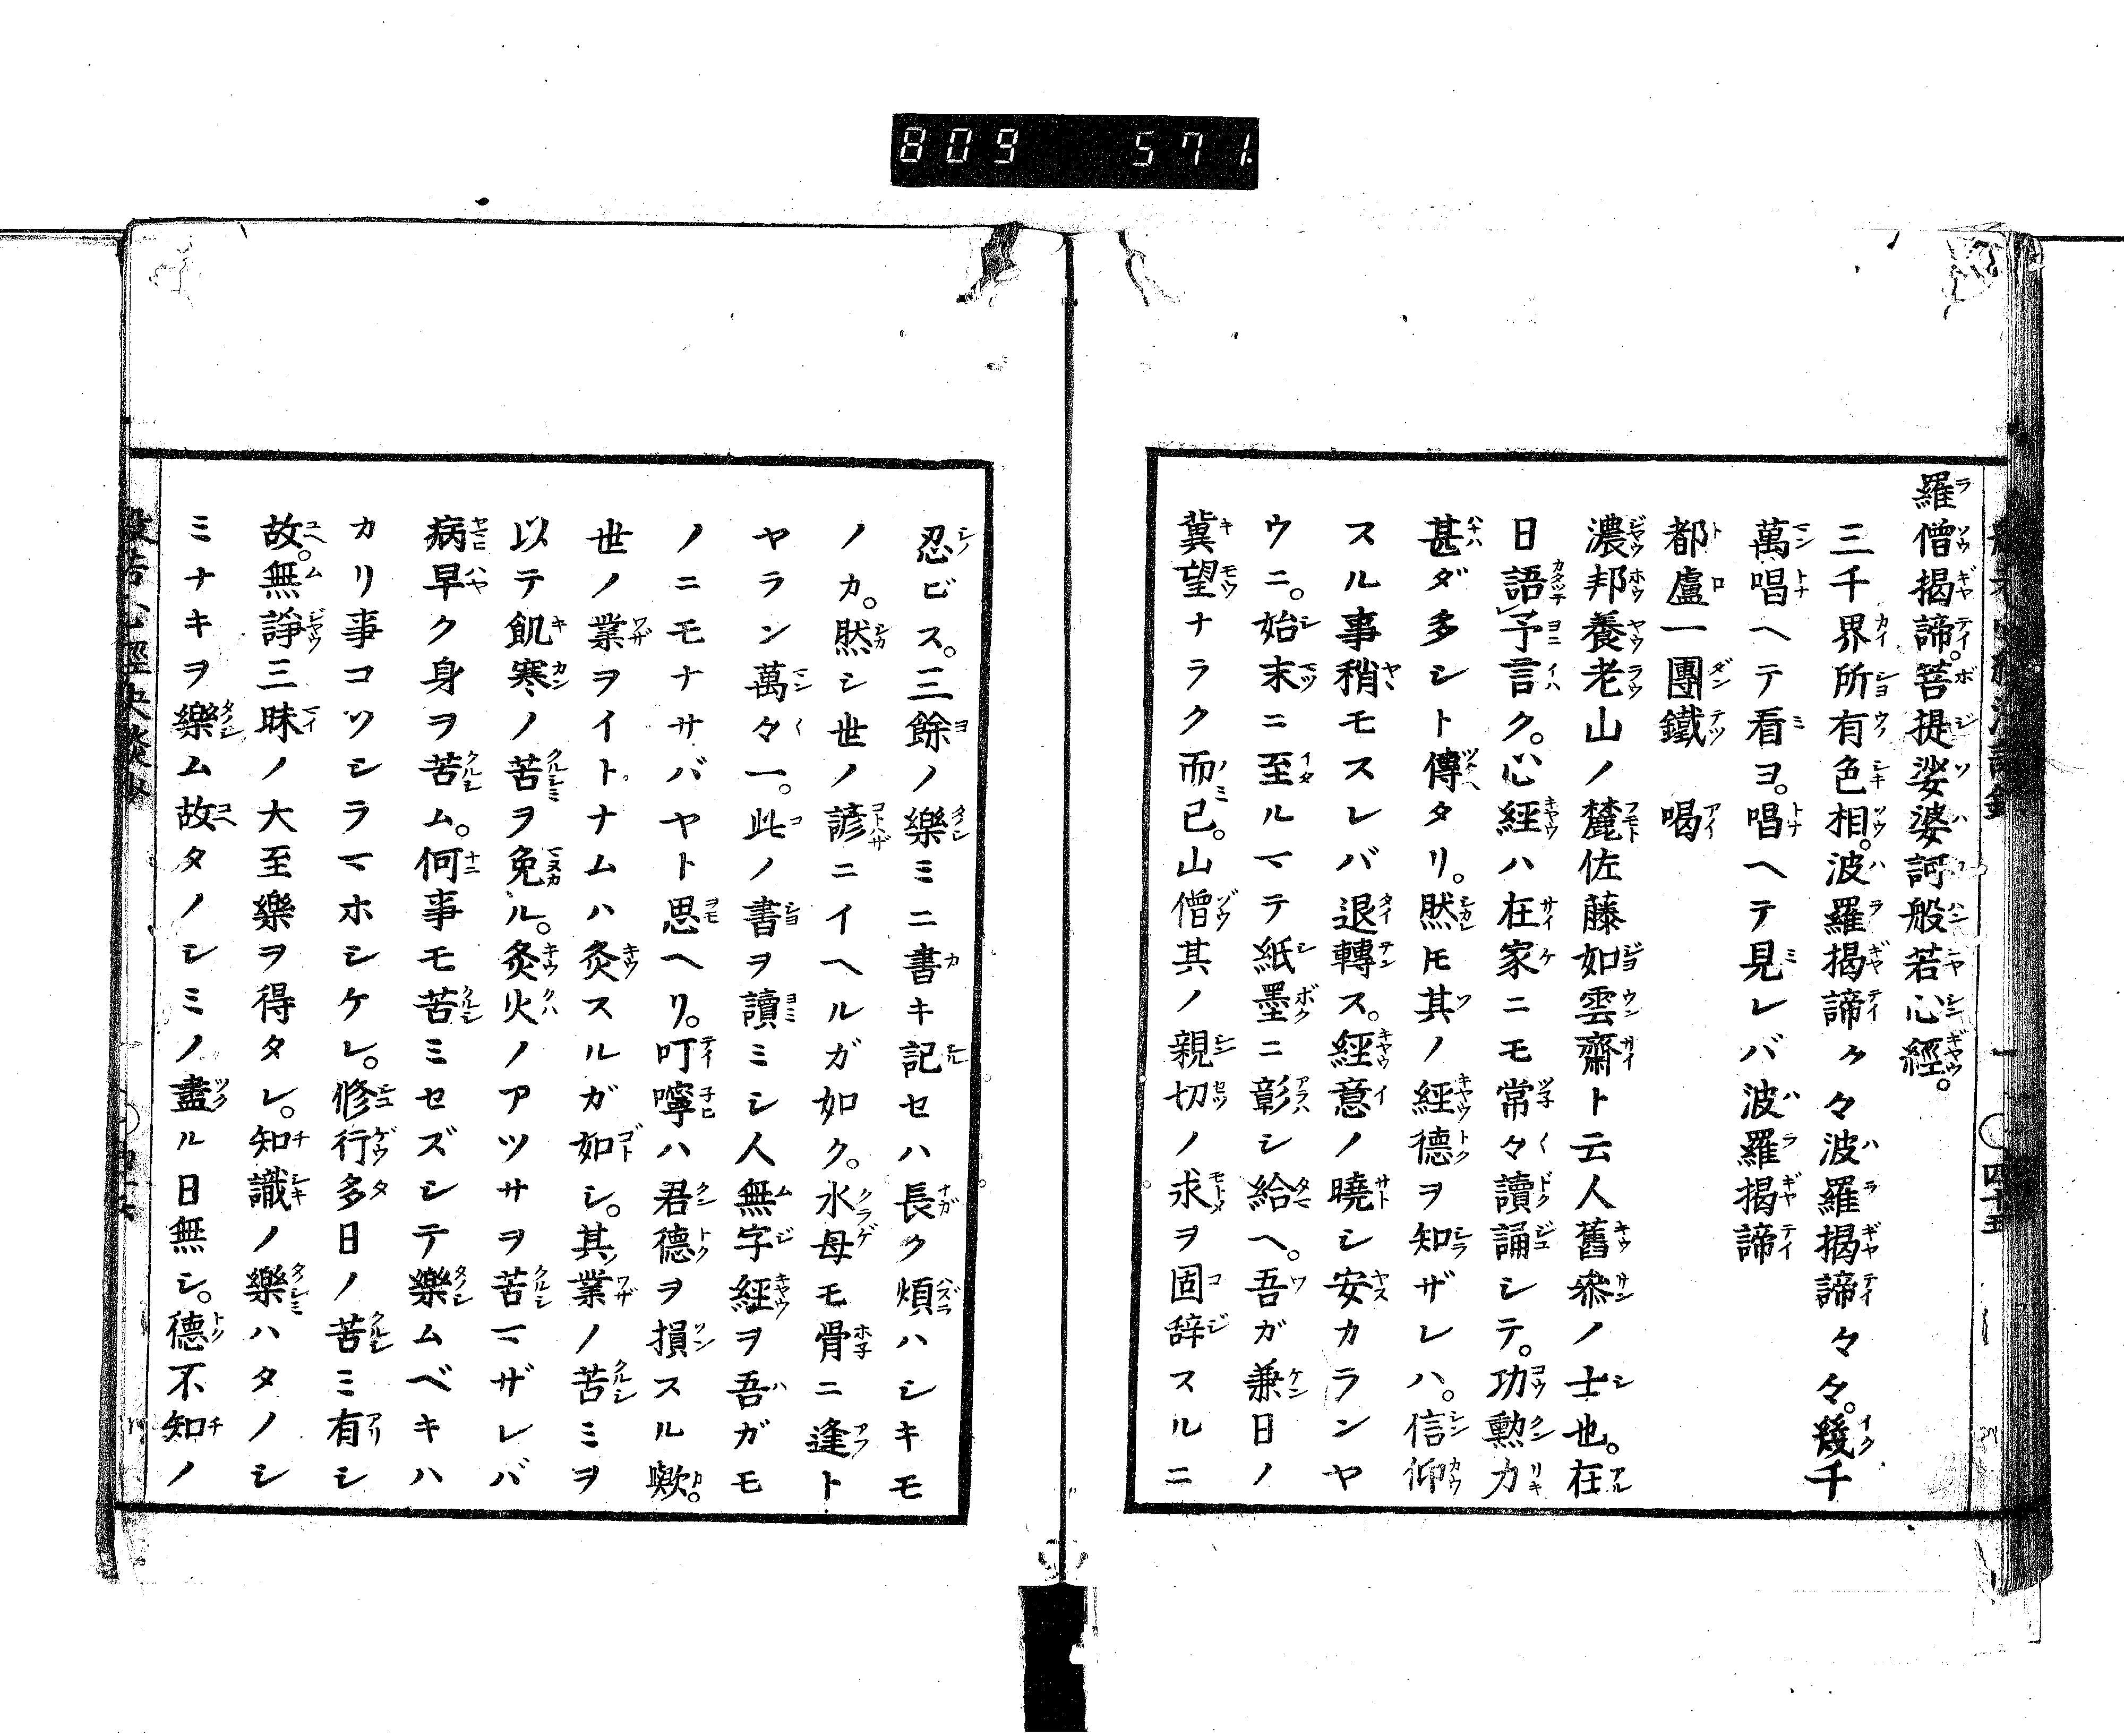 809 571.
羅僧揭諦。菩提娑婆訶般若心經。
三千界所有色相。波羅揭諦々々波羅揭諦々々。幾千
萬唱ヘテ看ヨ。唱ヘテ見レバ波羅揭諦
都盧一團鐵 喝
濃邦養老山ノ麓佐藤如雲齋ト云人舊參ノ士也。在
日語予言ク。心經ハ在家ニモ常々讀誦シテ。功勲力
甚ダ多シト傳タリ。然ヒ其ノ經德ヲ知ザレハ。信仰
スル事稍モスレバ退轉ス。經意ノ曉シ安カランヤ
ウニ。始末ニ至ルマテ紙墨ニ彰シ給ヘ。吾ガ兼日ノ
冀望ナラク而已。山僧其ノ親切ノ求ヲ固辞スルニ
四十五
忍ビス。三餘ノ樂ミニ書キ記セハ長ク煩ハシキモ
ノカ。然シ世ノ諺ニイヘルガ如ク。水母モ骨ニ逢ト
ヤラン萬々一。此ノ書ヲ讀ミシ人無字經ヲ吾ガモ
ノニモナサバヤト思ヘリ。叮嚀ハ君德ヲ損スル歟。
世ノ業ヲイトナムハ灸スルガ如シ。其業ノ苦ミヲ
以テ飢寒ノ苦ヲ免ル。灸火ノアツサヲ苦マザレバ
病早ク身ヲ苦ム。何事モ苦ミセズシテ樂ムベキハ
カリ事コソシラマホシケレ。修行多日ノ苦ミ有シ
故。無諍三昧ノ大至樂ヲ得タレ。知識ノ樂ハタノシ
ミナキヲ樂ム故タノシミノ盡ル日無シ。德不知ノ